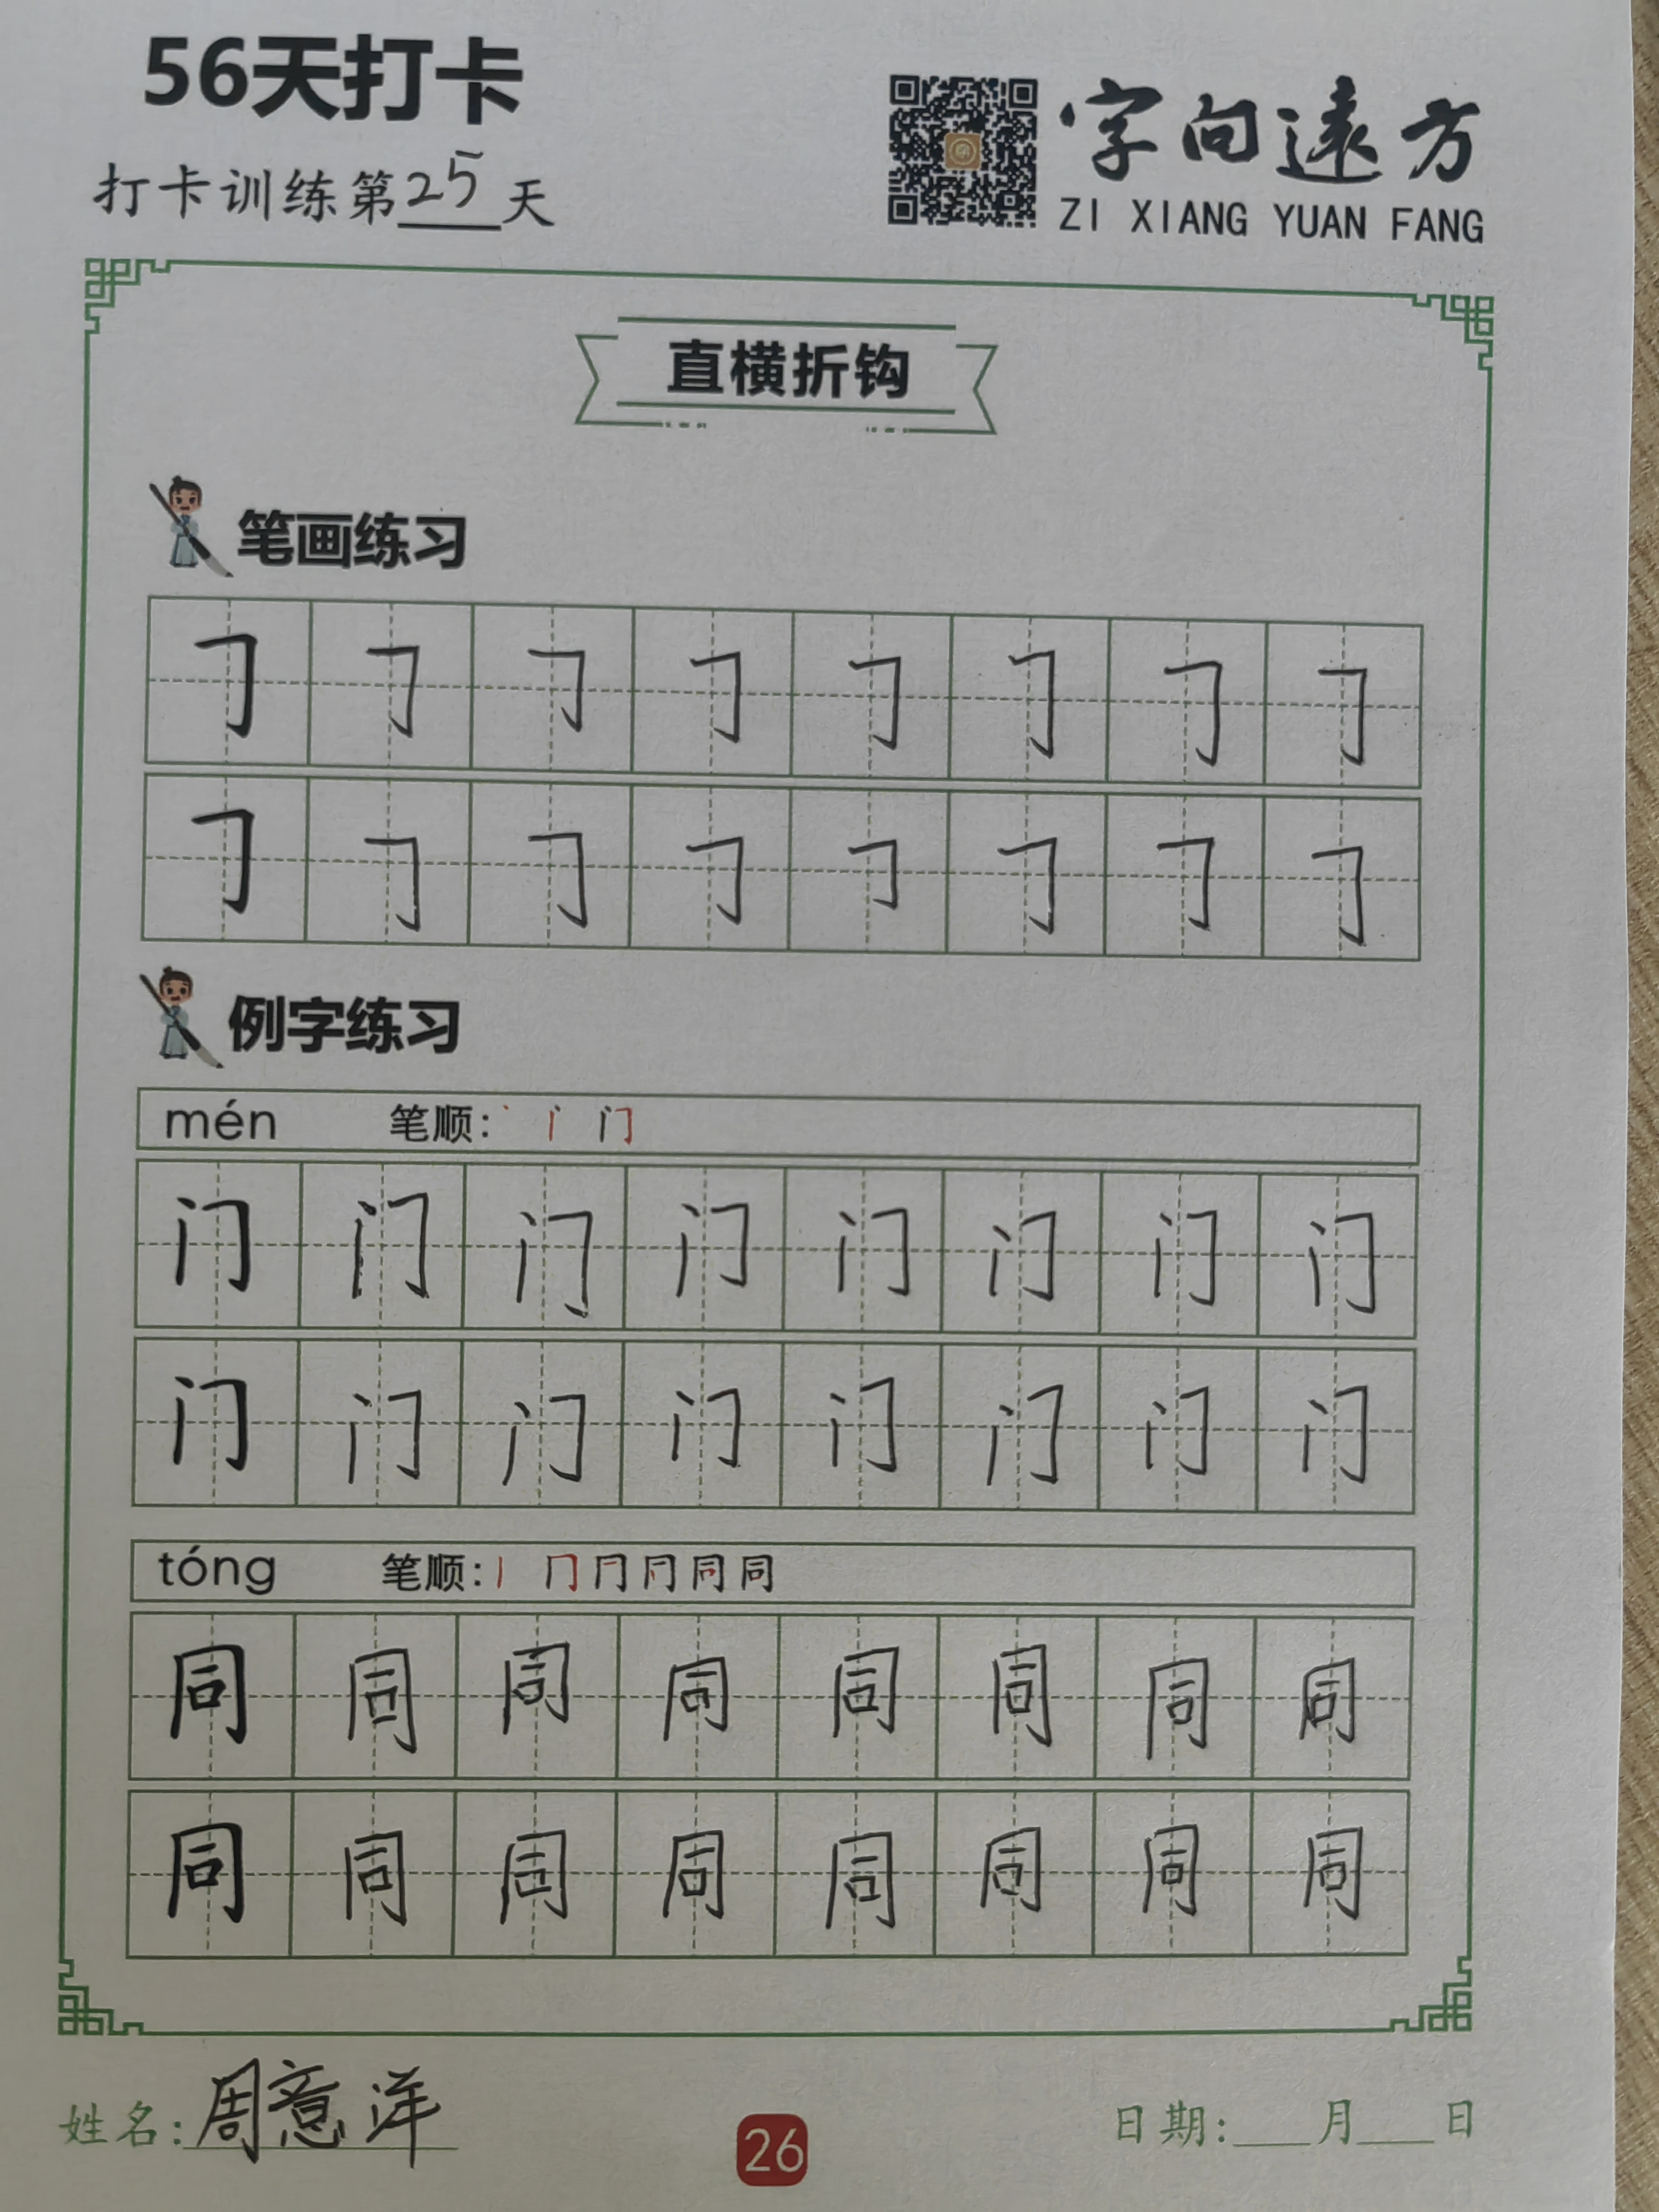 56天打卡
字向遠方
打卡训练第25天
ZI XIANG YUAN FANG
直横折钩
笔画练习
𠃌 𠃌 𠃌 𠃌 𠃌 𠃌 𠃌 𠃌
𠃌 𠃌 𠃌 𠃌 𠃌 𠃌 𠃌 𠃌
例字练习
mén 笔顺: 丶 门
门 门 门 门 门 门 门 门
门 门 门 门 门 门 门 门
tóng 笔顺: 丨 冂 同 同
同 同 同 同 同 同 同 同
同 同 同 同 同 同 同 同
姓名:周意洋
26
日期:___月___日